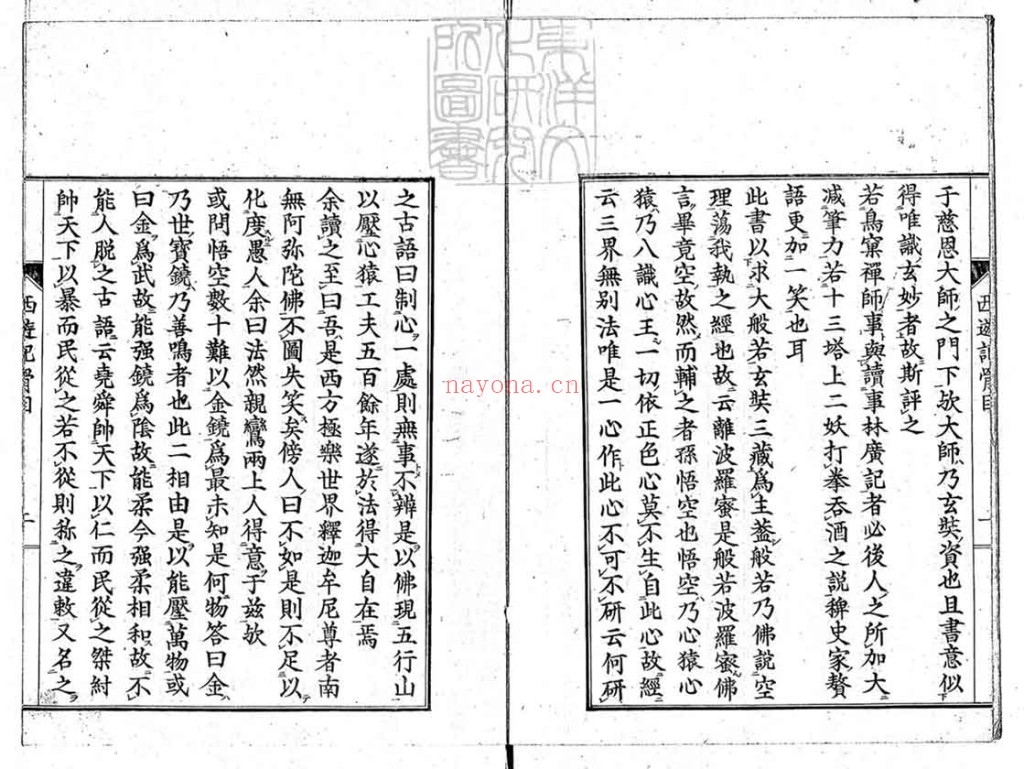 于慈恩大師之門下欤大師乃玄奘資也且書意似
得唯識玄妙者故斯評之
若鳥窠禪師事與讀事林廣記者必後人之所加大
减筆力若十三塔上二妖打拳吞酒之説稗史家贅
語更加一笑也耳
此書以求大般若玄奘三藏爲主葢般若乃佛説空
理蕩我執之經也故云離波羅蜜是般若波羅蜜佛
言畢竟空故然而輔之者孫悟空也悟空乃心猿心
猿乃八識心王一切依正色心莫不生自此心故經
云三界無别法唯是一心作此心不可不研云何研
西遊記
一
之古語曰制心一處則無事不辨是以佛現五行山
以壓心猿工夫五百餘年遂於法得大自在焉
余讀之至曰吾是西方極樂世界釋迦牟尼尊者南
無阿弥陀佛不圖失笑矣傍人曰不如是則不足以
化度愚人余曰法然親鸞兩上人得意于兹欤
或問悟空數十難以金鏡爲最未知是何物答曰金
乃世寶鏡乃善鳴者也此二相由是以能壓萬物或
曰金爲武故能强鏡爲陰故能柔今强柔相和故不
能人脱之古語云堯舜帥天下以仁而民從之桀紂
帥天下以暴而民從之若不從則称之違敕又名之
西遊記
二
東洋文化研究所圖書
nayona.cn